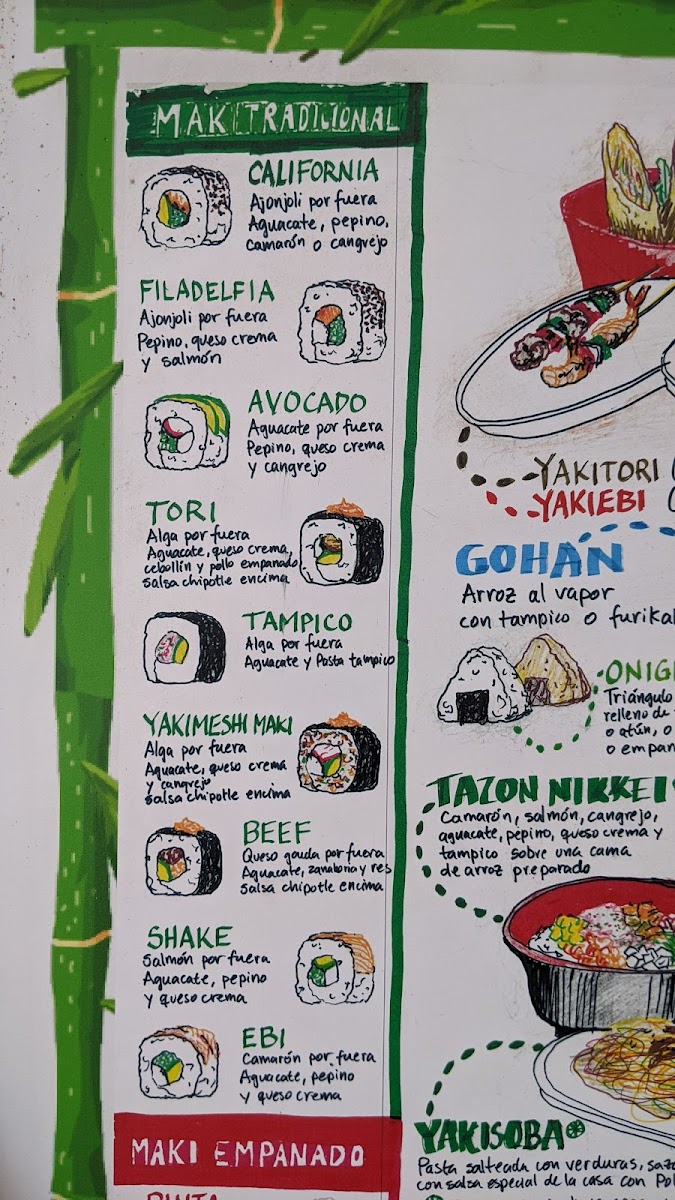 MAKI TRADICIONAL
CALIFORNIA
Ajonjoli por fuera
Aguacate, pepino,
camarón o cangrejo
FILADELFIA
Ajonjoli por fuera
Pepino, queso crema
y salmón
AVOCADO
Aguacate por fuera
Pepino, queso crema
y cangrejo
TORI
Alga por fuera
Aguacate, queso crema,
cebollín y pollo empanado
salsa chipotle encima
TAMPICO
Alga por fuera
Aguacate y Pasta tampico
YAKIMESHI MAKI
Alga por fuera
Aguacate, queso crema
y cangrejo
salsa chipotle encima
BEEF
Queso gouda por fuera
Aguacate, zanahoria y res
salsa chipotle encima
SHAKE
Salmón por fuera
Aguacate, pepino
y queso crema
EBI
Camarón por fuera
Aguacate, pepino
y queso crema
MAKI EMPANADO
YAKITORI
YAKIEBI
GOHAN
Arroz al vapor
con tampico o
Triángulo
relleno de
o atún, o
TAZON NIKKEI
Camarón, salmón, cangrejo,
aguacate, pepino, queso crema y
tampico sobre una cama
de arroz preparado
YAKISOBA
Pasta salteada con verduras,
con salsa especial de la casa con